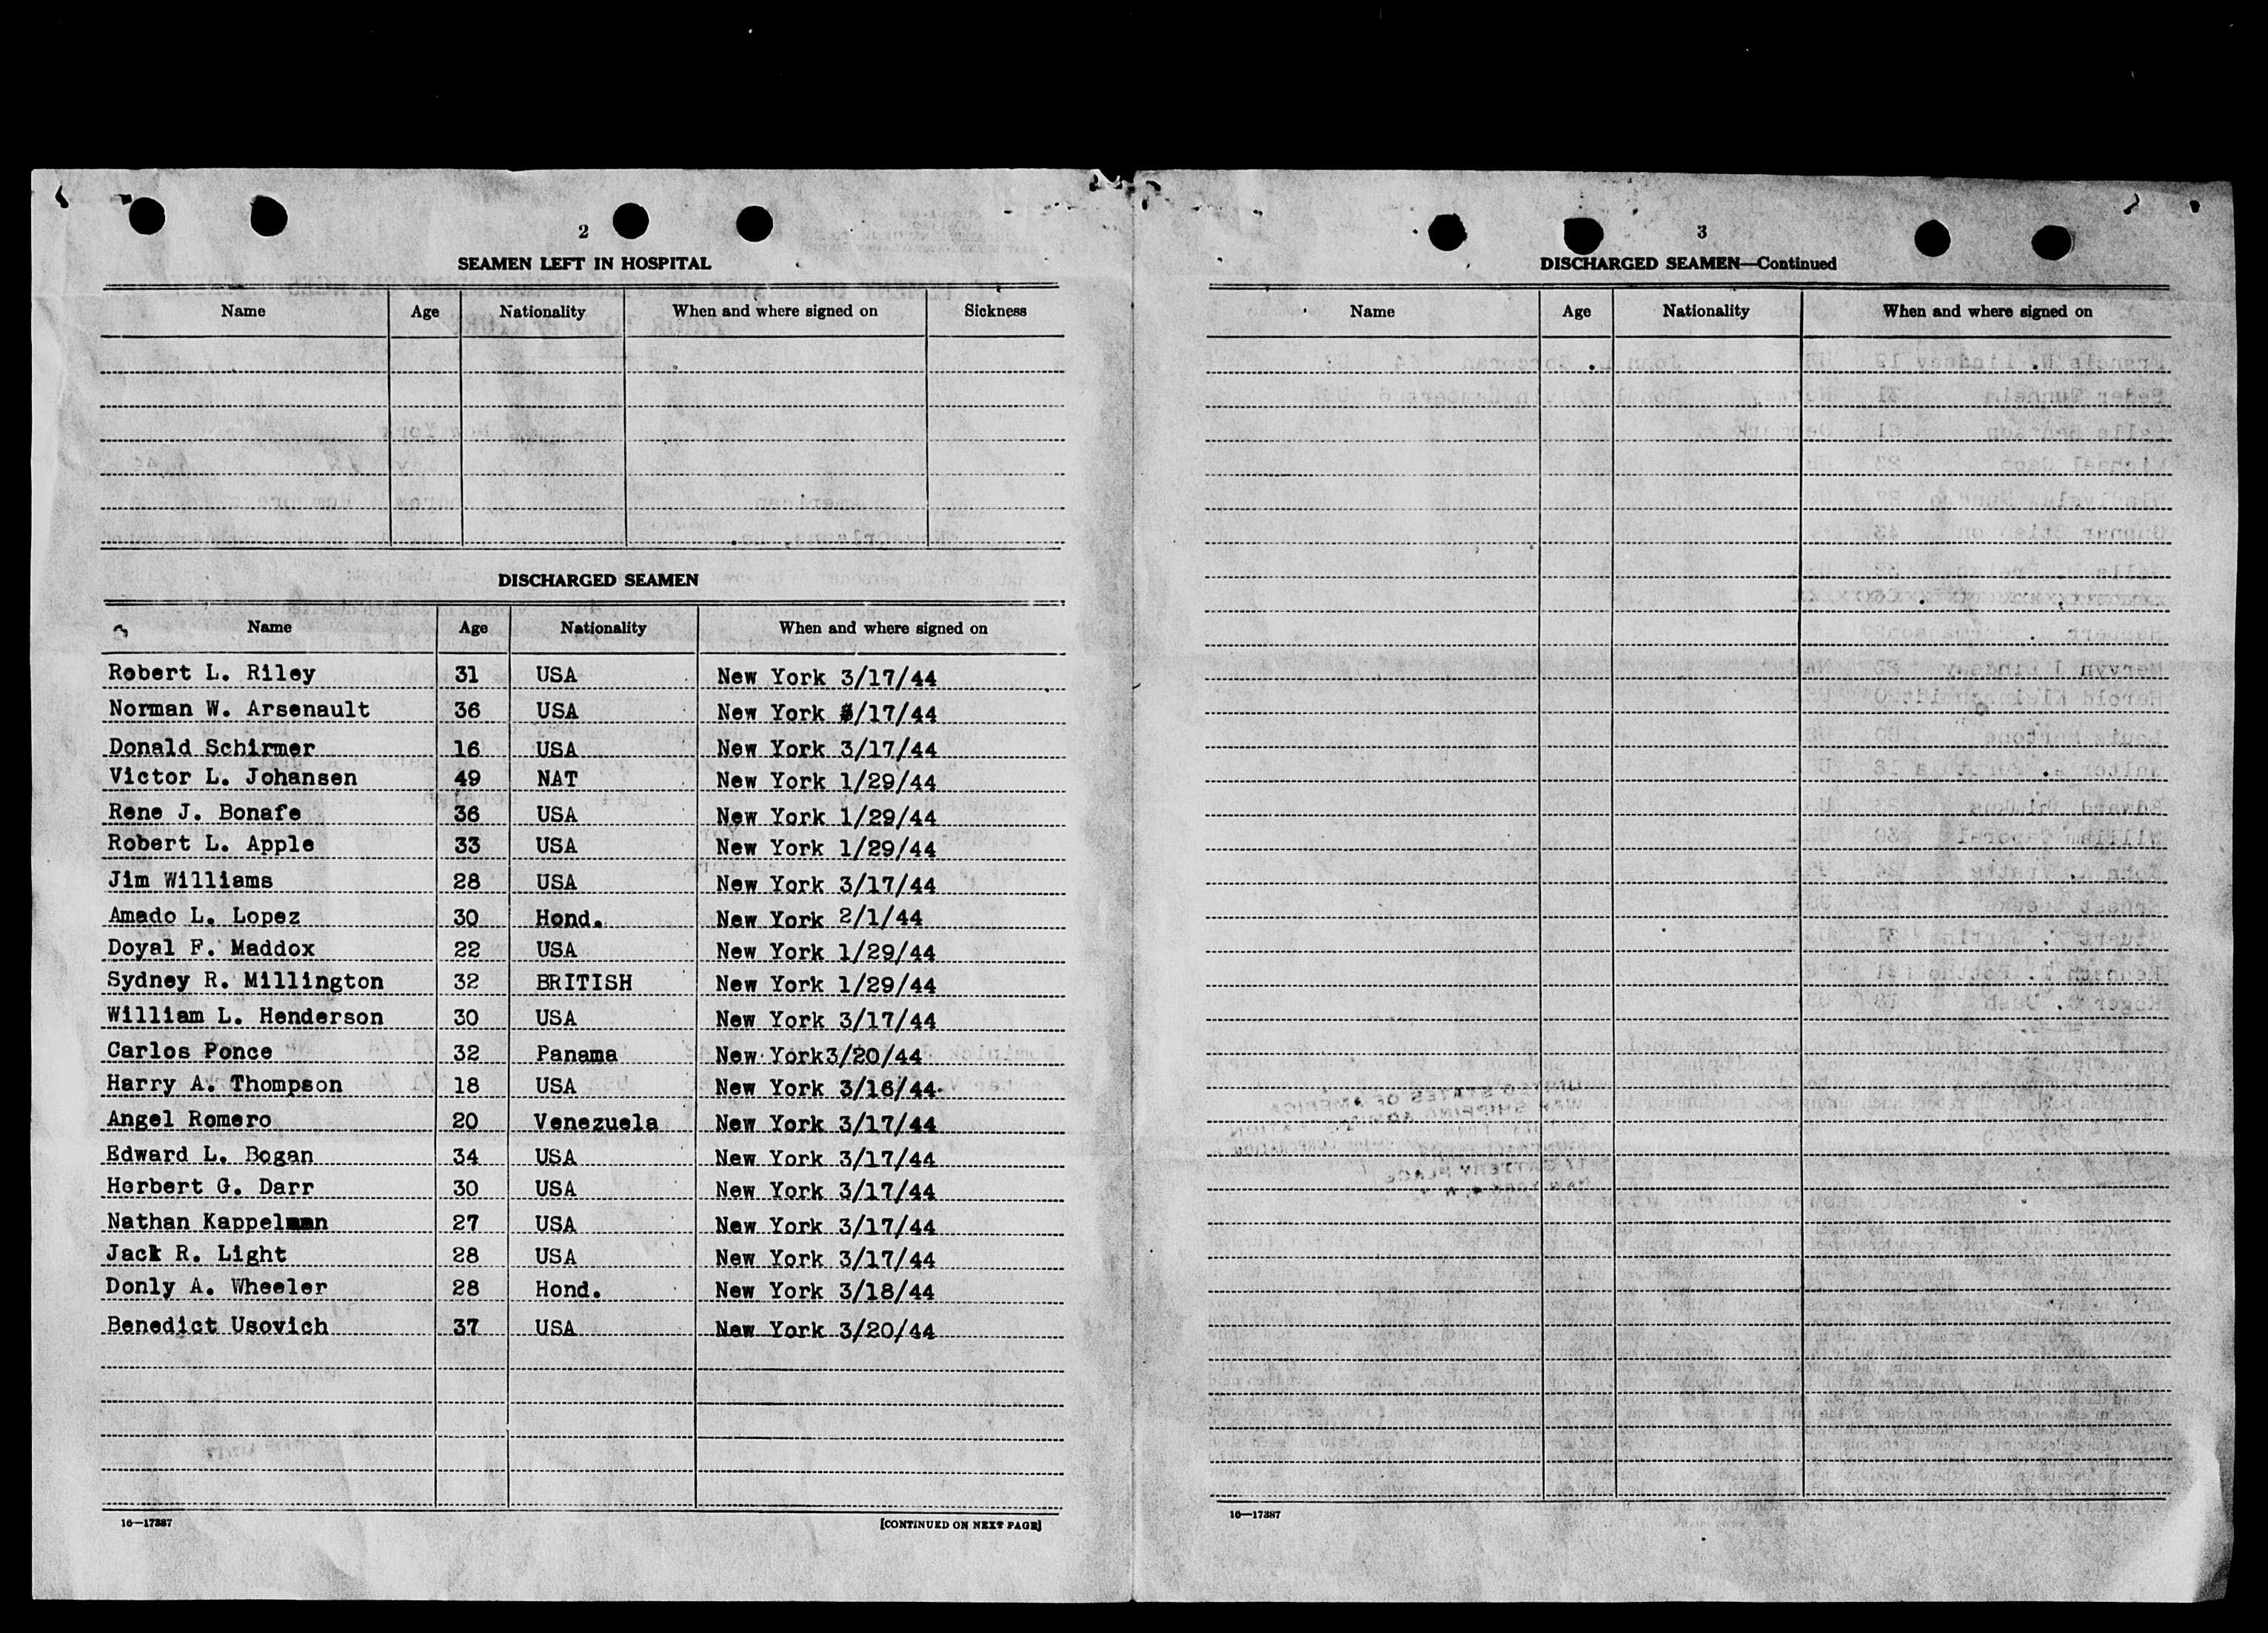 2
SEAMEN LEFT IN HOSPITAL
Name Age Nationality When and where signed on Sickness
DISCHARGED SEAMEN
Name Age Nationality When and where signed on
Robert L. Riley 31 USA New York 3/17/44
Norman W. Arsenault 36 USA New York 3/17/44
Donald Schirmer 16 USA New York 3/17/44
Victor L. Johansen 49 NAT New York 1/29/44
Rene J. Bonafe 36 USA New York 1/29/44
Robert L. Apple 33 USA New York 1/29/44
Jim Williams 28 USA New York 3/17/44
Amado L. Lopez 30 Hond. New York 2/1/44
Doyal F. Maddox 22 USA New York 1/29/44
Sydney R. Millington 32 BRITISH New York 1/29/44
William L. Henderson 30 USA New York 3/17/44
Carlos Ponce 32 Panama New York3/20/44
Harry A. Thompson 18 USA New York 3/16/44
Angel Romero 20 Venezuela New York 3/17/44
Edward L. Bogan 34 USA New York 3/17/44
Herbert G. Darr 30 USA New York 3/17/44
Nathan Kappelman 27 USA New York 3/17/44
Jack R. Light 28 USA New York 3/17/44
Donly A. Wheeler 28 Hond. New York 3/18/44
Benedict Usovich 37 USA New York 3/20/44
16—17387 [CONTINUED ON NEXT PAGE]
3
DISCHARGED SEAMEN—Continued
Name Age Nationality When and where signed on
16—17387